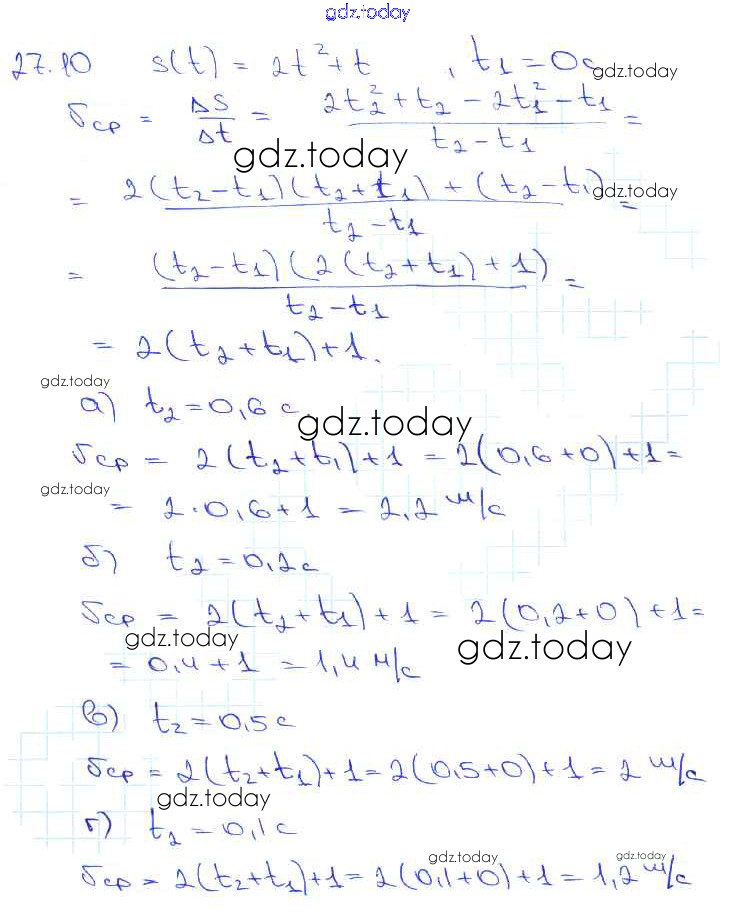 gdz.today
27.10 s(t) = 2t² + t , t₁ = 0c gdz.today
υср = ΔS/Δt = (2t₂² + t₂ - 2t₁² - t₁)/(t₂ - t₁) =
gdz.today
= (2(t₂-t₁)(t₂+t₁) + (t₂-t₁))/(t₂-t₁) = gdz.today
= ((t₂-t₁)(2(t₂+t₁)+1))/(t₂-t₁) =
= 2(t₂+t₁)+1.
gdz.today
а) t₂ = 0,6 c
gdz.today
υср = 2(t₂+t₁)+1 = 2(0,6+0)+1 =
gdz.today
= 2·0,6+1 = 2,2 м/с
б) t₂ = 0,2c
υср = 2(t₂+t₁)+1 = 2(0,2+0)+1 =
gdz.today gdz.today
= 0,4+1 = 1,4 м/с
в) t₂ = 0,5 c
υср = 2(t₂+t₁)+1 = 2(0,5+0)+1 = 2 м/с
gdz.today
г) t₂ = 0,1 c
gdz.today gdz.today
υср = 2(t₂+t₁)+1 = 2(0,1+0)+1 = 1,2 м/с